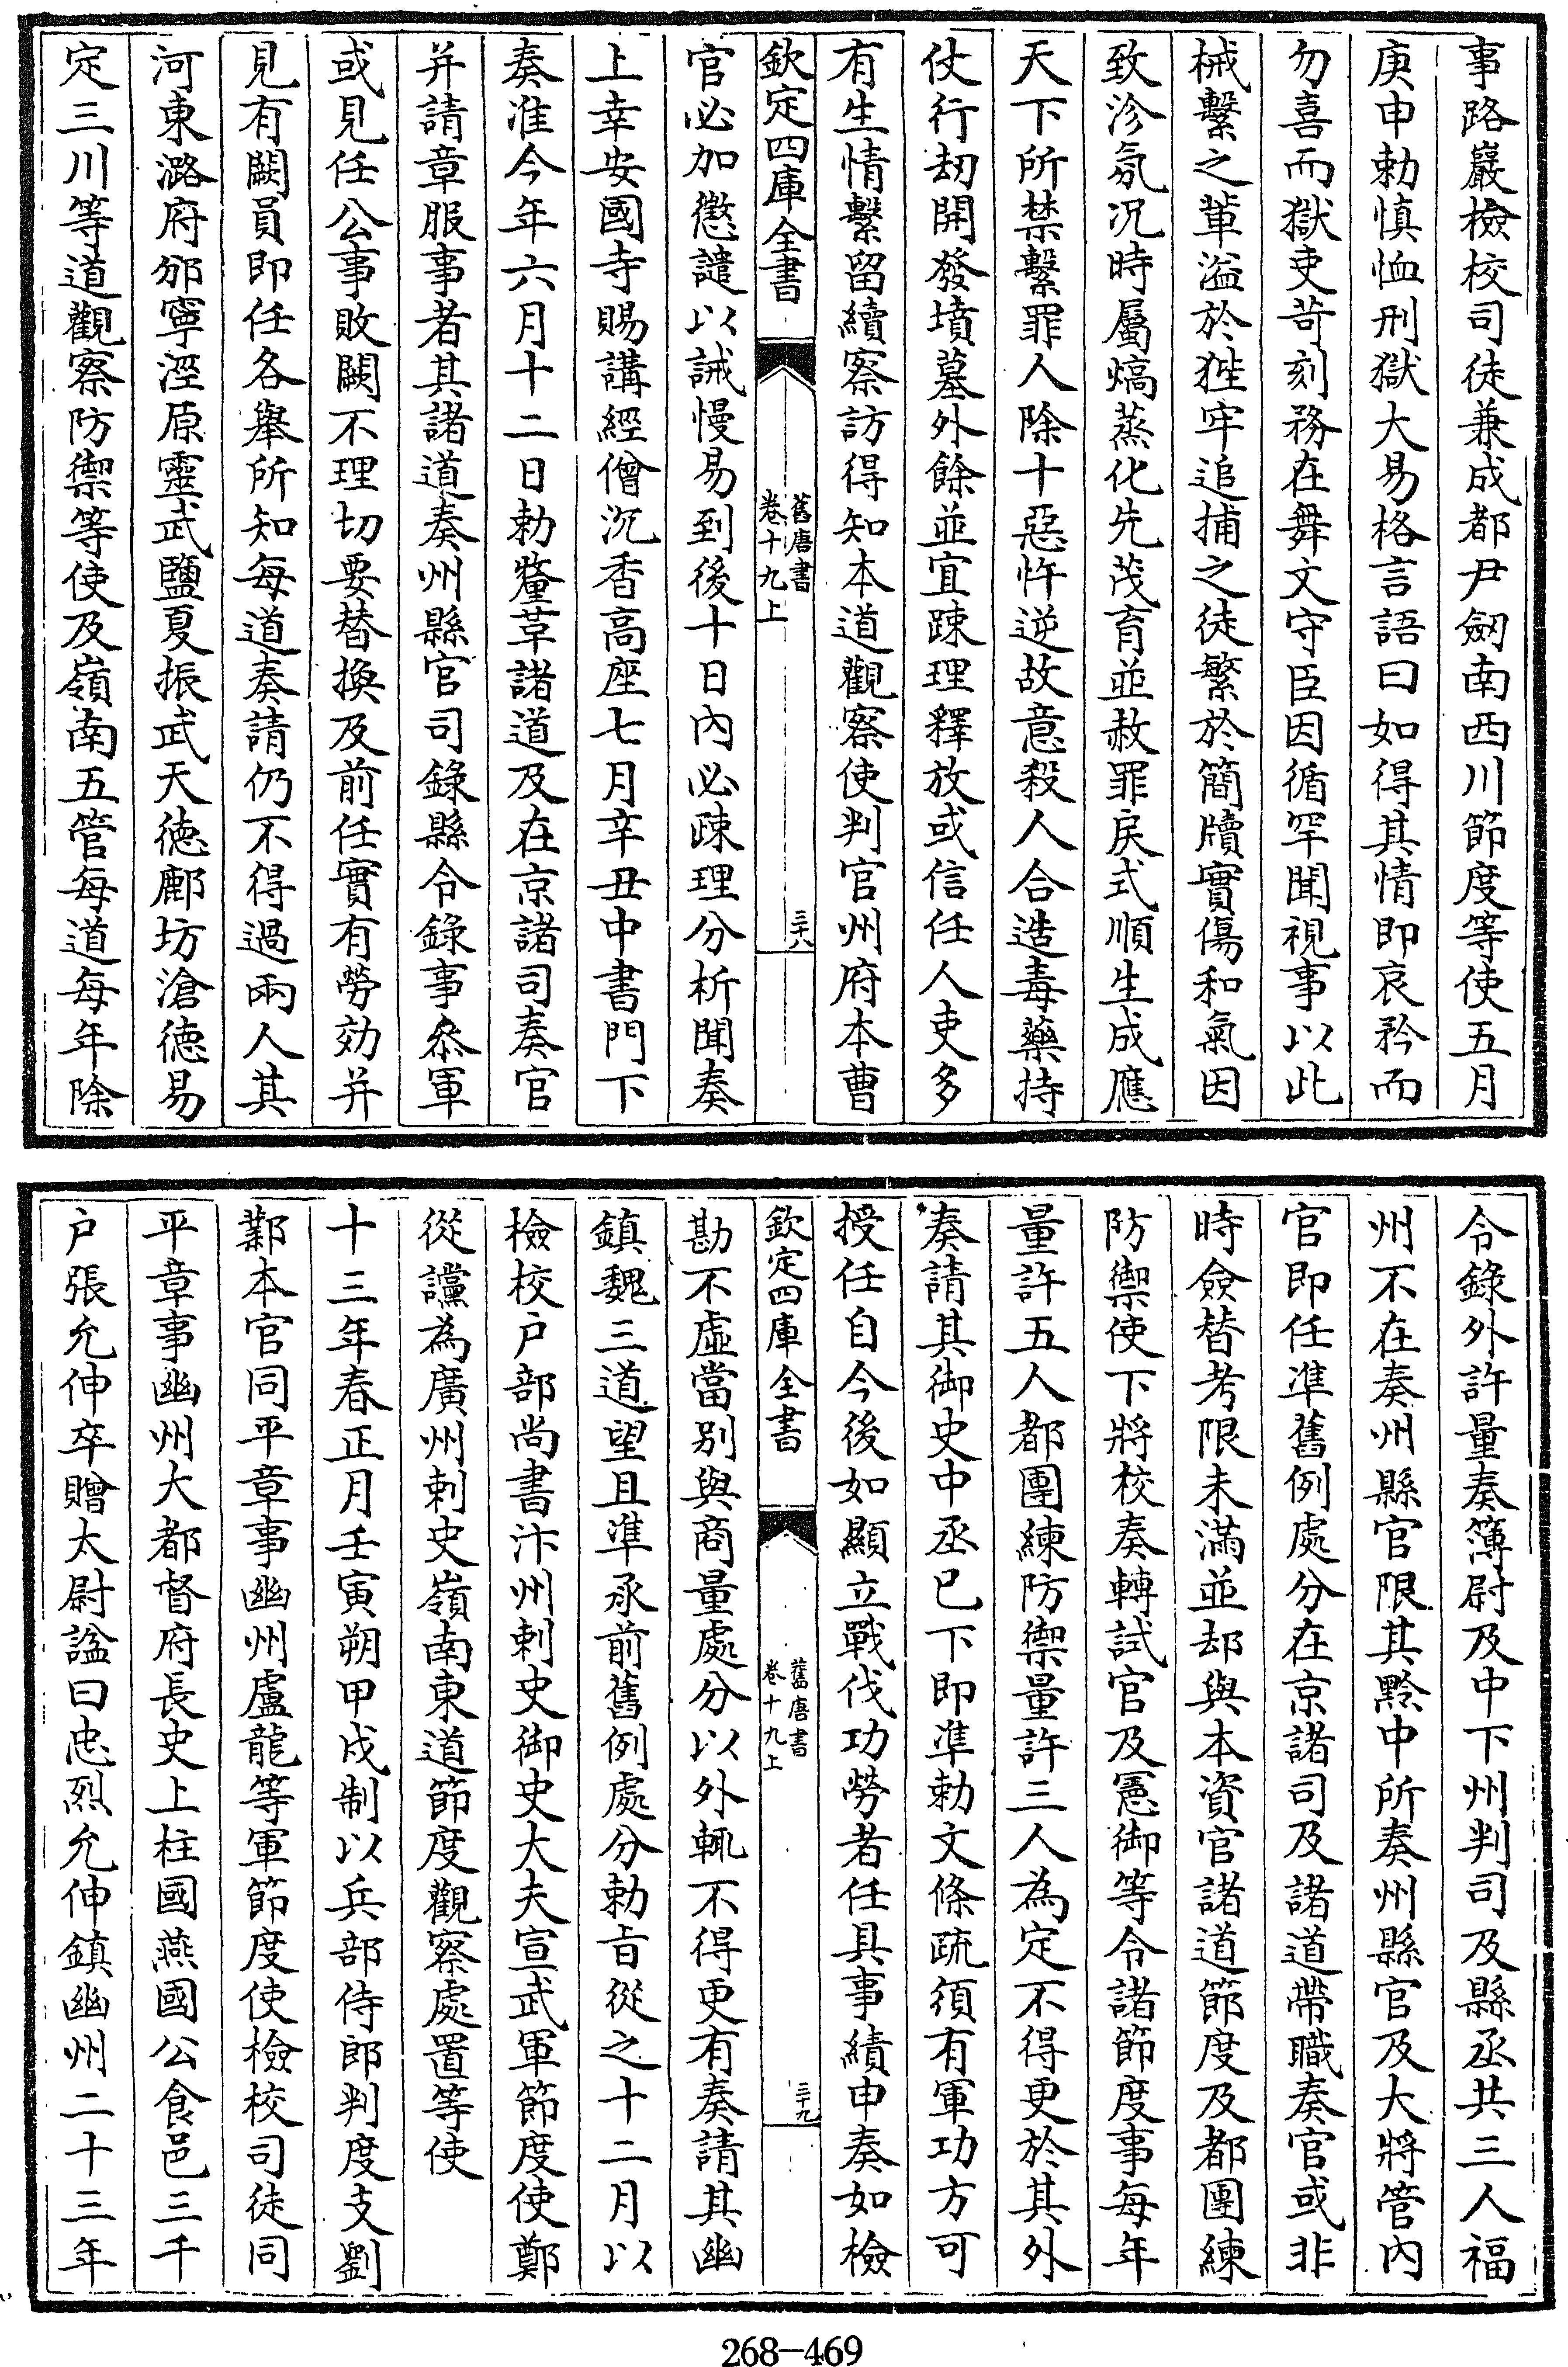 事路巖檢校司徒兼成都尹劒南西川節度等使五月
庚申勅慎恤刑獄大易格言語曰如得其情即哀矜而
勿喜而獄吏苛刻務在舞文守臣因循罕聞視事以此
械繫之軰溢於狴牢追捕之徒繁於簡牘實傷和氣因
致沴氛况時屬熇蒸化先茂育並赦罪戾式順生成應
天下所禁繫罪人除十惡忤逆故意殺人合造毒藥持
仗行刼開發墳墓外餘並宜踈理釋放或信任人吏多
有生情繫留續察訪得知本道觀察使判官州府本曹
欽定四庫全書
舊唐書
卷十九上
三十八
官必加懲譴以誡慢易到後十日內必踈理分析聞奏
上幸安國寺賜講經僧沉香高座七月辛丑中書門下
奏准今年六月十二日勅釐革諸道及在京諸司奏官
并請章服事者其諸道奏州縣官司錄縣令錄事叅軍
或見任公事敗闕不理切要替換及前任實有勞効并
見有闕員即任各舉所知每道奏請仍不得過兩人其
河東潞府邠寧涇原靈武鹽夏振武天徳鄜坊滄徳易
定三川等道觀察防禦等使及嶺南五管每道每年除
令錄外許量奏簿尉及中下州判司及縣丞共三人福
州不在奏州縣官限其黔中所奏州縣官及大將管內
官即任準舊例處分在京諸司及諸道帶職奏官或非
時僉替考限未滿並却與本資官諸道節度及都團練
防禦使下將校奏轉試官及憲御等令諸節度事每年
量許五人都團練防禦量許三人為定不得更於其外
奏請其御史中丞已下即準勅文條疏須有軍功方可
授任自今後如顯立戰伐功勞者任具事績申奏如檢
欽定四庫全書
舊唐書
卷十九上
三十九
勘不虛當別與商量處分以外輒不得更有奏請其幽
鎮魏三道望且準承前舊例處分勅旨從之十二月以
檢校户部尚書汴州刺史御史大夫宣武軍節度使鄭
從讜為廣州刺史嶺南東道節度觀察處置等使
十三年春正月壬寅朔甲戍制以兵部侍郎判度支劉
鄴本官同平章事幽州盧龍等軍節度使檢校司徒同
平章事幽州大都督府長史上柱國燕國公食邑三千
户張允伸卒贈太尉諡曰忠烈允伸鎮幽州二十三年
268-469